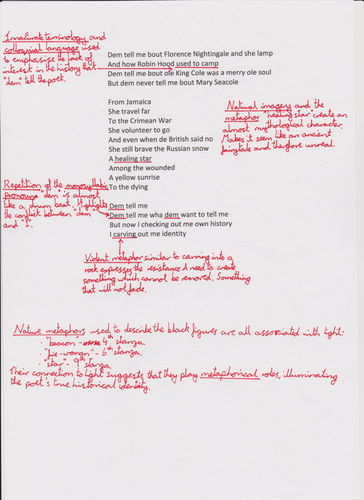 Immature terminology and
colloquial language used
to emphasise the lack of
interest in the history that
"dem" tell the poet.
Dem tell me bout Florence Nightingale and she lamp
And how Robin Hood used to camp
Dem tell me bout ole King Cole was a merry ole soul
But dem never tell me bout Mary Seacole
From Jamaica
She travel far
To the Crimean War
She volunteer to go
And even when de British said no
She still brave the Russian snow
A healing star
Among the wounded
A yellow sunrise
To the dying
Natural imagery and the
metaphor "healing star" create an
almost mythological character.
Makes it seem like an ancient
fairytale and therefore unreal.
Repetition of the monosyllabic
pronoun "dem" is almost
like a drum beat. Highlights
the conflict between "dem"
and "I".
Dem tell me
Dem tell me wha dem want to tell me
But now I checking out me own history
I carving out me identity
Violent metaphor similar to carving into a
rock expresses the resistance + need to create
something which cannot be removed. Something
that will not fade.
Nature metaphors used to describe the black figures are all associated with light:
· "beacon" - 4th stanza.
· "fire-woman" - 6th stanza.
· "star" - 9th stanza.
Their connection to light suggests that they play metaphorical roles, illuminating
the poet's true historical identity.